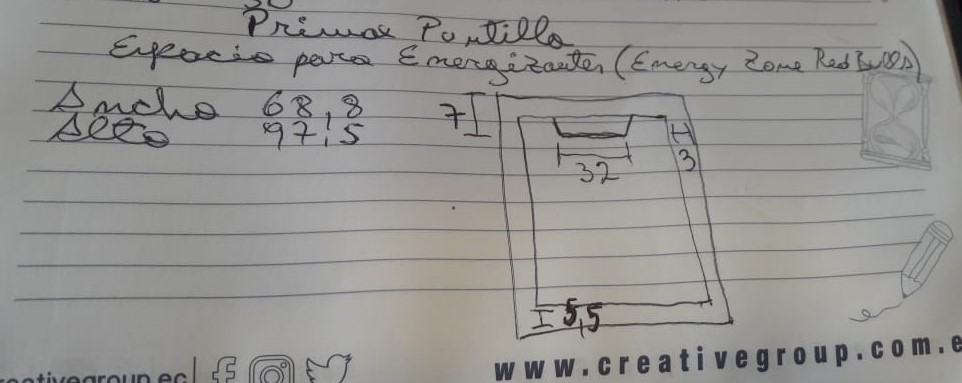 30
Primax Portillo
Espacio para Energizantes (Energy Zone Red Bulls)
Ancho 68,8
Alto 97,5
7
3
32
5,5
www.creativegroup.com.e
reativegroup.ec